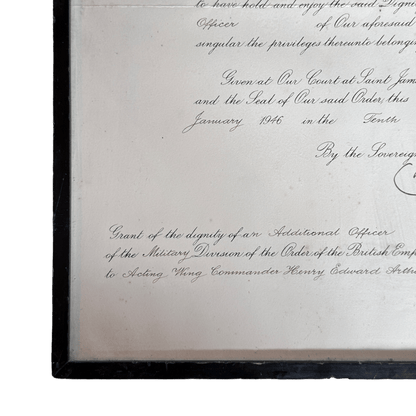 to have hold and enjoy the said Dign
Officer of Our aforesaid
singular the privileges thereunto belongin
Given at Our Court at Saint Jam
and the Seal of Our said Order, this
January 1946 in the Tenth
By the Sovereign
Grant of the dignity of an Additional Officer
of the Military Division of the Order of the British Emp
to Acting Wing Commander Henry Edward Arthu